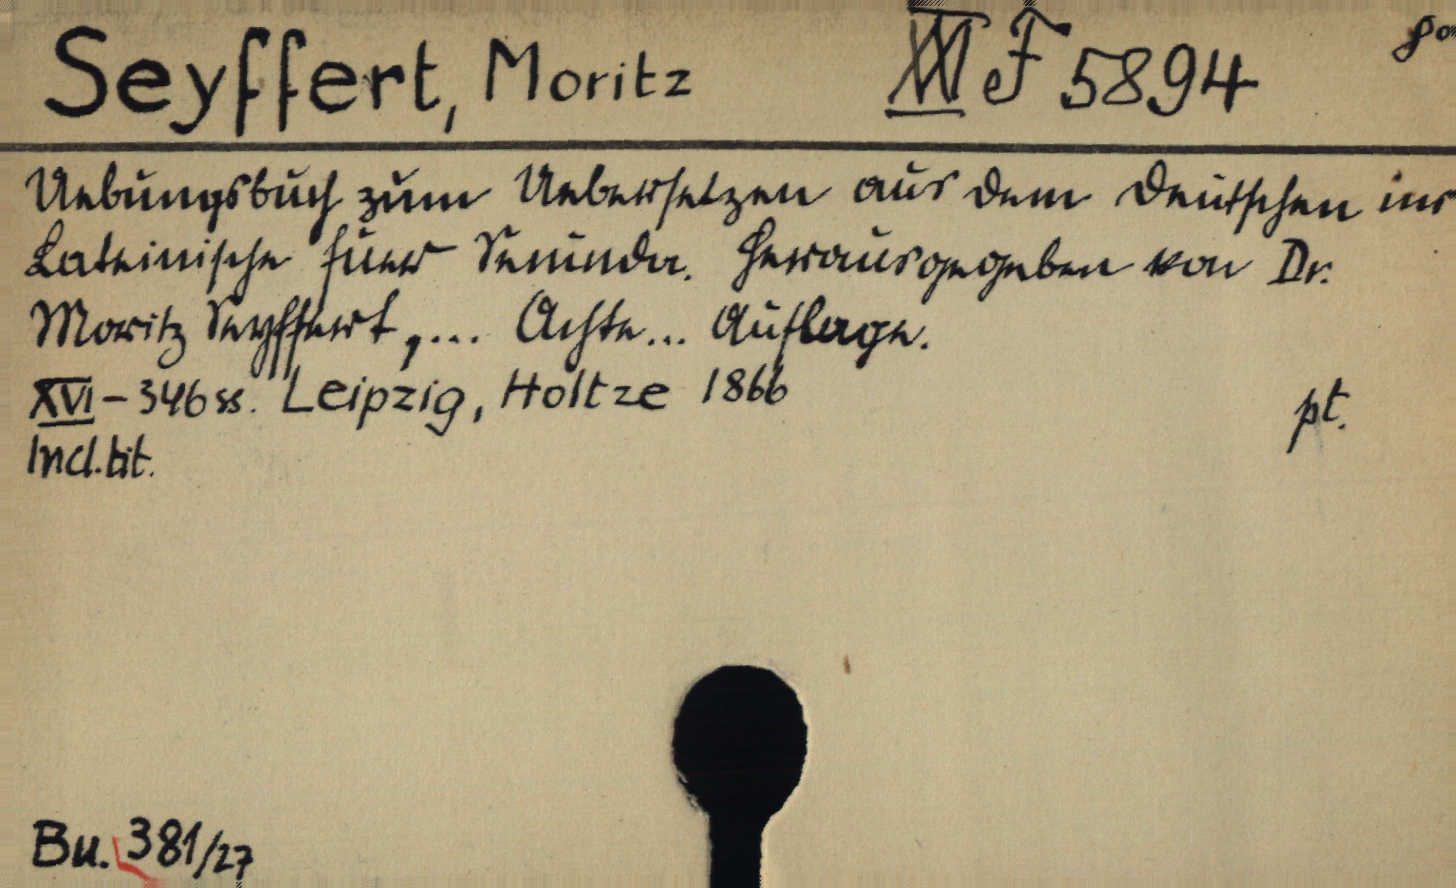 Seyffert, Moritz XVI eF 5894
Uebungsbuch zum Uebersetzen aus dem Deutschen ins
Lateinische fuer Secunda. Herausgegeben von Dr.
Moritz Seyffert, ... Achte... Auflage.
XVI - 346 ss. Leipzig, Holtze 1866
pt.
Incl. tit.
Bu. 381/27